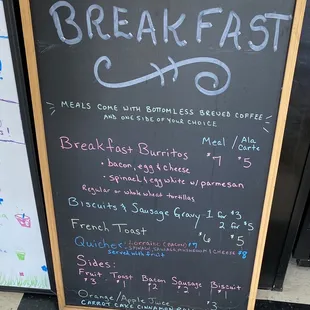 BREAKFAST
MEALS COME WITH BOTTOMLESS BREWED COFFEE
AND ONE SIDE OF YOUR CHOICE
Meal / Ala Carte
Breakfast Burritos $7 $5
• bacon, egg & cheese
• spinach & egg white w/ parmesan
Regular or whole wheat tortillas
Biscuits & Sausage Gravy - 1 for $3
2 for $5
French Toast $6 $5
Quiche: LORRAINE (BACON) $7
SPINACH, SAUSAGE, MUSHROOM & CHEESE $8
served with fruit
Sides:
Fruit Toast Bacon Sausage Biscuit
$3 $1 $2 $2 $1
Orange/Apple Juice $3
CARROT CAKE CINNAMON